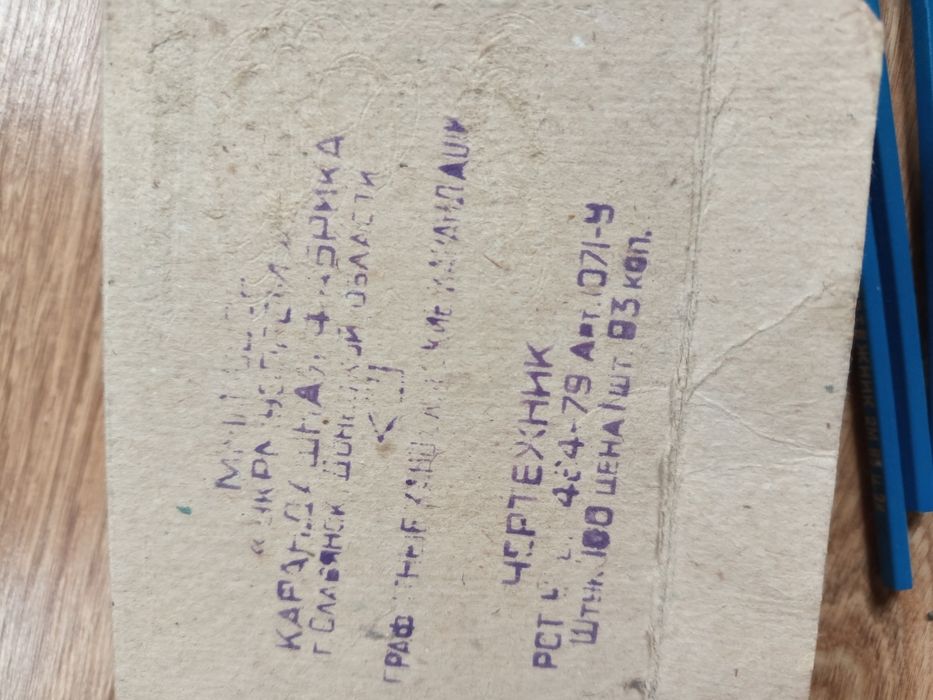 КАРАНДАШНАЯ ФАБРИКА
г СЛАВЯНСК ДОНЕЦКОЙ ОБЛАСТИ
ГРАФИТНЫЕ КАНЦЕЛЯРСКИЕ КАРАНДАШИ
ЧЕРТЕЖНИК
РСТ 484-79 Арт. 1071-У
Штук 100 ЦЕНА 1 шт. 03 коп.